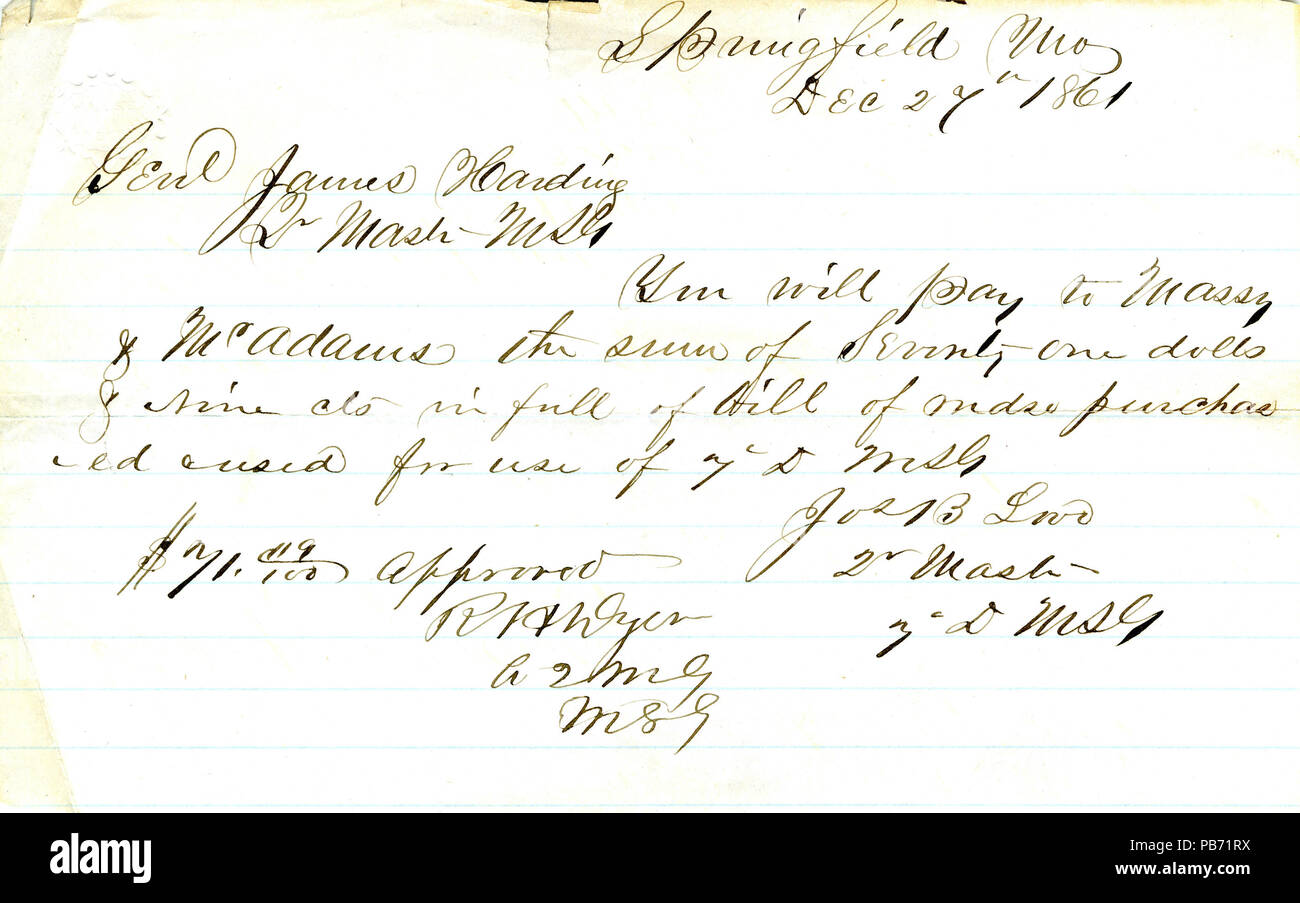 Springfield Mo
Dec 27th 1861
Genl James Harding
Qr Mastr MSG
You will pay to Massy
& McAdams the sum of Seventy-one dolls
& Nine cts in full of bill of mdse purchas
-ed & used for use of 7th D MSG
Jos B
Qr Mastr
7th D MSG
$71.09/100 Approved
R H Dyer
A Q M G
MSG
alamy
alamy
Image ID: PB71RX
www.alamy.com